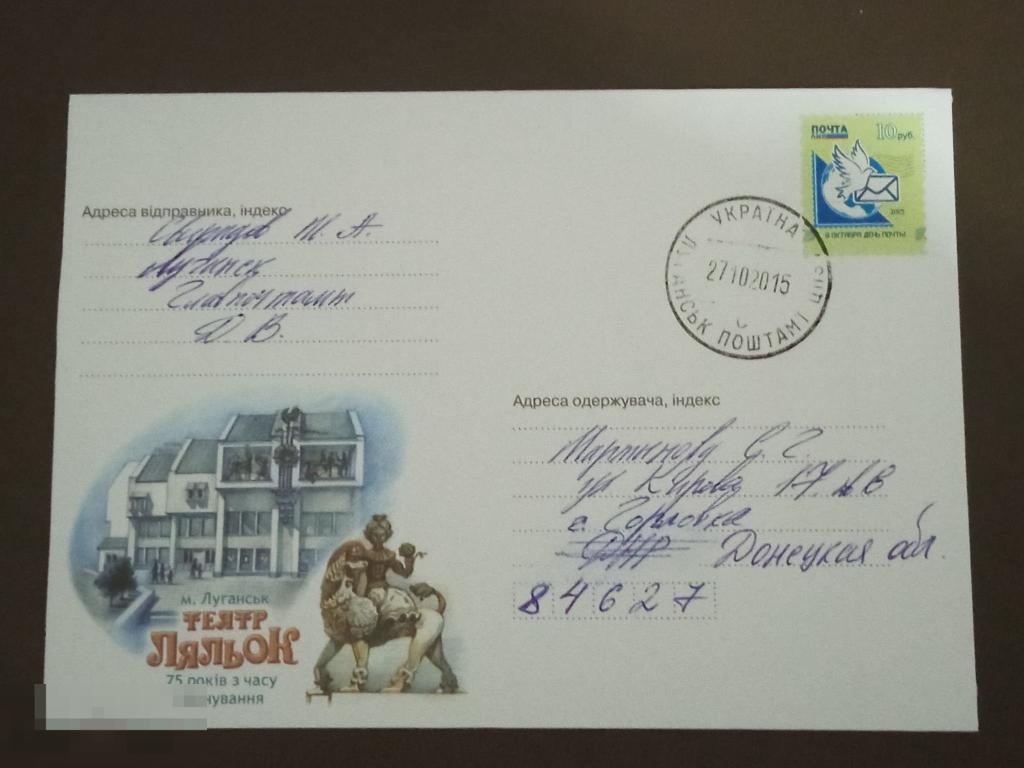 ПОЧТА
10 руб.
2015
9 ОКТЯБРЯ ДЕНЬ ПОЧТЫ
УКРАЇНА
27102015
ЛУГАНСЬК ПОШТАМТ
Адреса відправника, індекс
Ж. А.
Луганск
Главпочтамт
Д. В.
Адреса одержувача, індекс
Мартынову С. Г.
ул Кирова 17
г. Горловка
ДНР Донецкая обл.
84627
м. Луганськ
ТЕАТР
ЛЯЛЬОК
75 років з часу